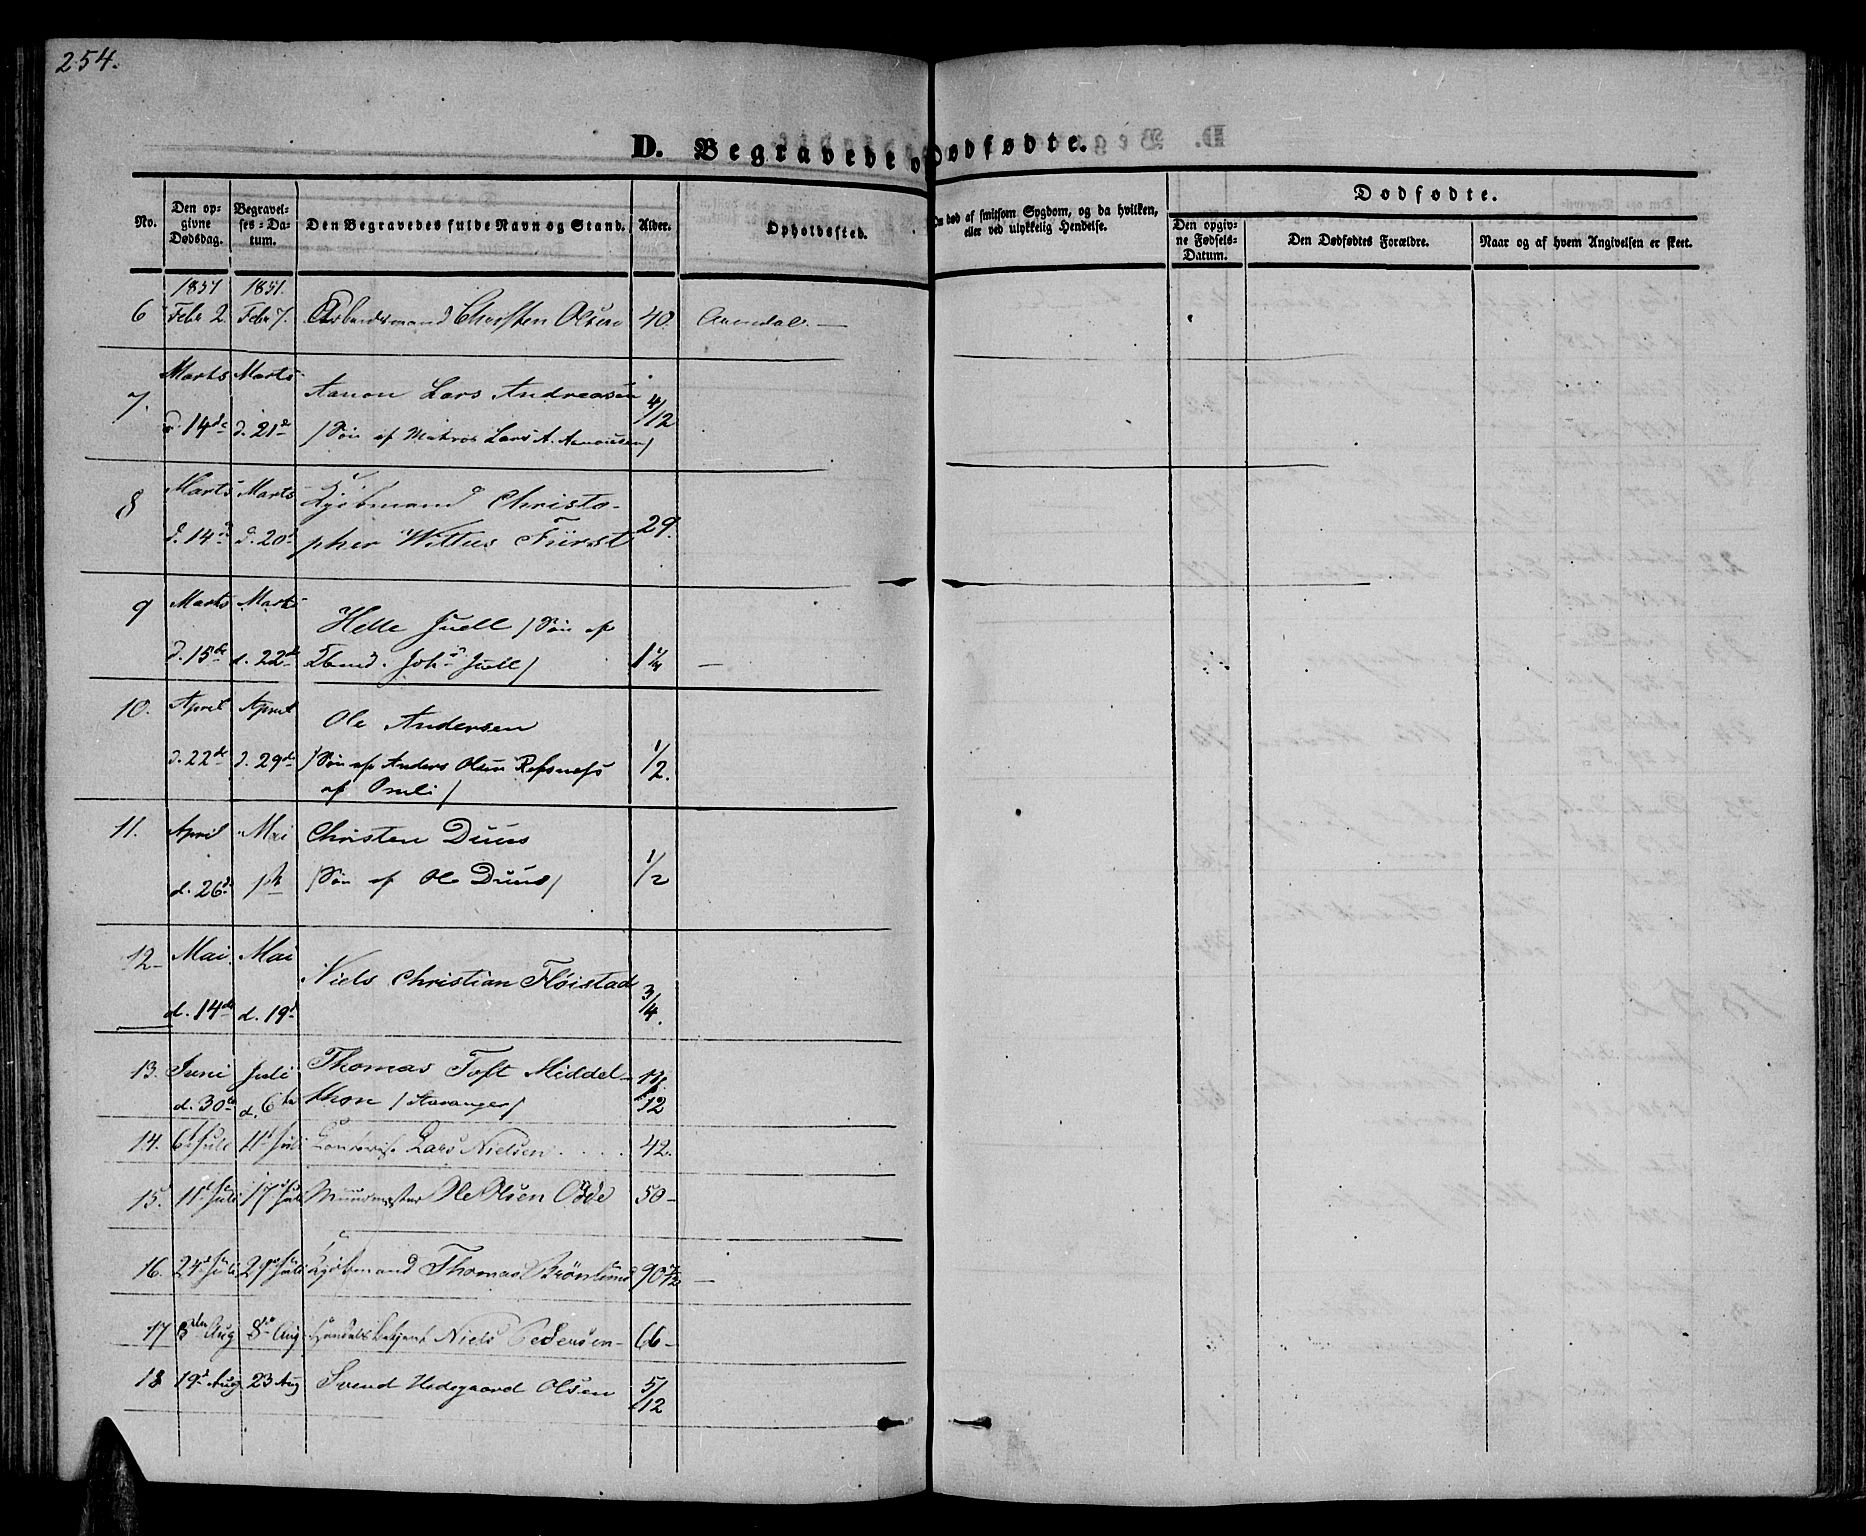 254.
D. Begravede o Dødfødte.
No.
Den opgivne Dødsdag.
Begravelses-Datum.
Den Begravedes fulde Navn og Stand.
Alder.
Opholdssted.
død af smitsom Sygdom, og da hvilken, eller ved ulykkelig Hendelse.
Dødfødte.
Den opgivne Fødsels-Datum.
Den Dødfødtes Forældre.
Naar og af hvem Angivelsen er skeet.
1851 1851.
6 Febr 2. Febr 7. Arbeidsmand Thorsten Olsen 40. Arendal.—
7. Marts d. 14de Marts d. 21de Aanon Lars Andreasen 4/12
/Søn af Matros Lars A. Aanonsen/
8 Marts d. 14d Marts d. 20d Kjøbmand Christo-
pher Wittus Fürst 29.
9 Marts d. 15de Marts d. 22de Helle Juell /Søn af
Joh. Juell/ 1 —
10. April d. 22de April d. 29de Ole Andersen
/Søn af Anders Olsen Refsnefs
af Omli/ 1/2.
11. April d. 26d Mai 1ste Christen Duus
/Søn af Ole Duus/ 1/2
12- Mai d. 14de Mai d. 19d Niels Christian Fløistad 3/4.
13. Juni d. 30te Juli d. 6te Thomas Toft Middel-
thon /Stavanger/ /12
14. 6t Juli 11t Juli Lars Nielsen.... 42.
15. 11t Juli 17d Juli Muurmester Ole Olsen Odde 50-
16. 24d Juli 29d Juli Kjøbmand Thomas Brønlund 90 1/2 —
17 3die Aug 8de Aug Handelsbetjent Niels Pedersen- 66-
18 19d Aug 23 Aug Svend Hedegaard Olsen 5/12